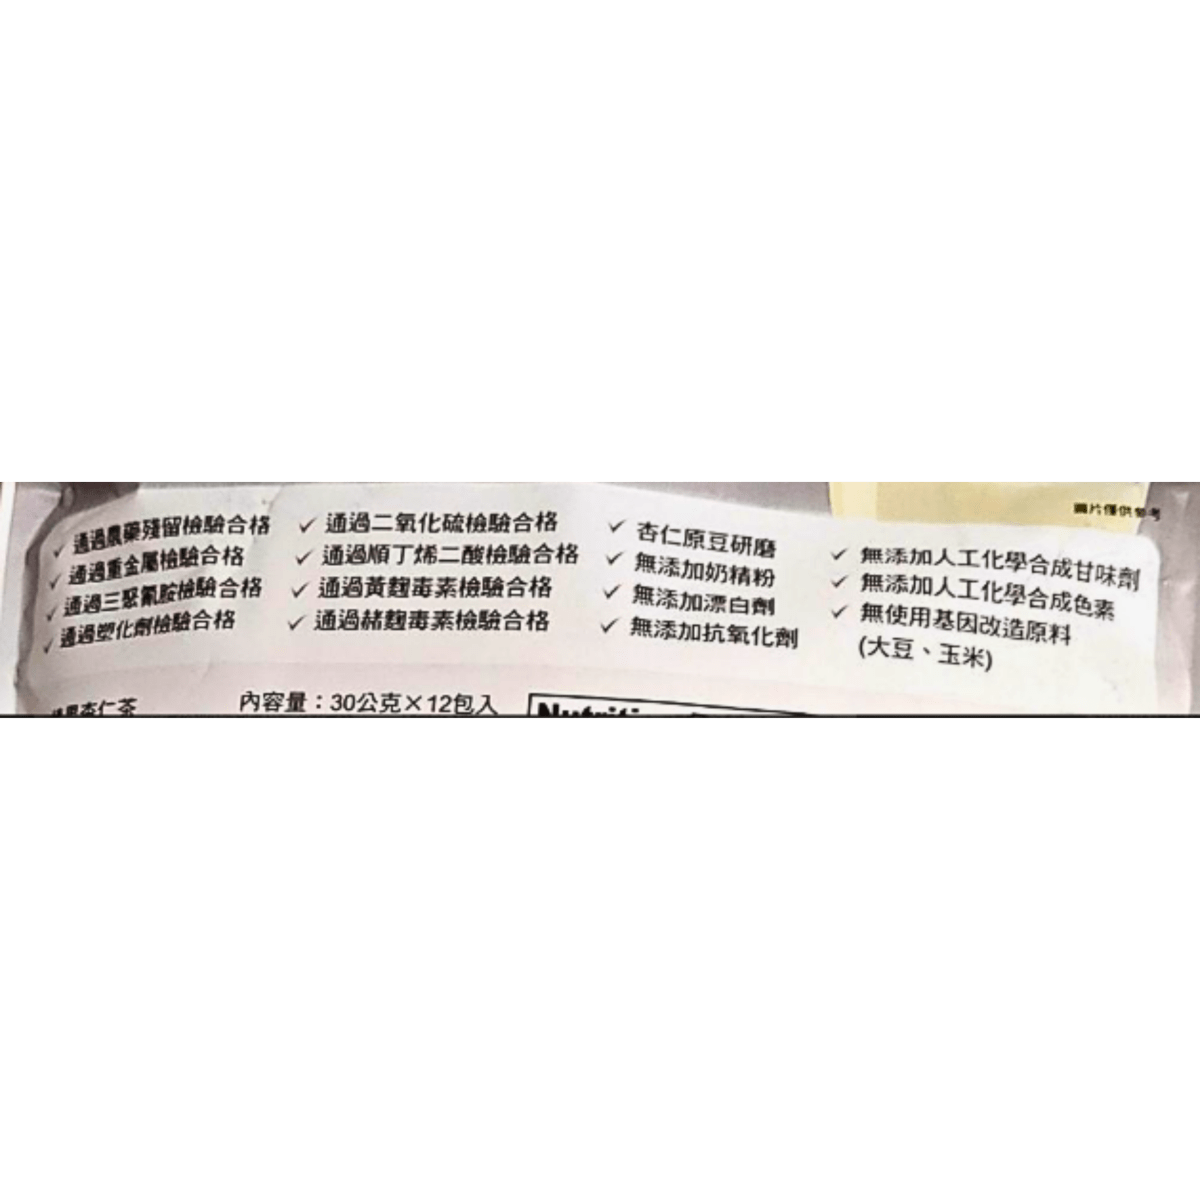 圖片僅供參考
✓ 通過農藥殘留檢驗合格
✓ 通過重金屬檢驗合格
✓ 通過三聚氰胺檢驗合格
✓ 通過塑化劑檢驗合格
✓ 通過二氧化硫檢驗合格
✓ 通過順丁烯二酸檢驗合格
✓ 通過黃麴毒素檢驗合格
✓ 通過赭麴毒素檢驗合格
✓ 杏仁原豆研磨
✓ 無添加奶精粉
✓ 無添加漂白劑
✓ 無添加抗氧化劑
✓ 無添加人工化學合成甘味劑
✓ 無添加人工化學合成色素
✓ 無使用基因改造原料
(大豆、玉米)
杏仁茶
內容量：30公克×12包入